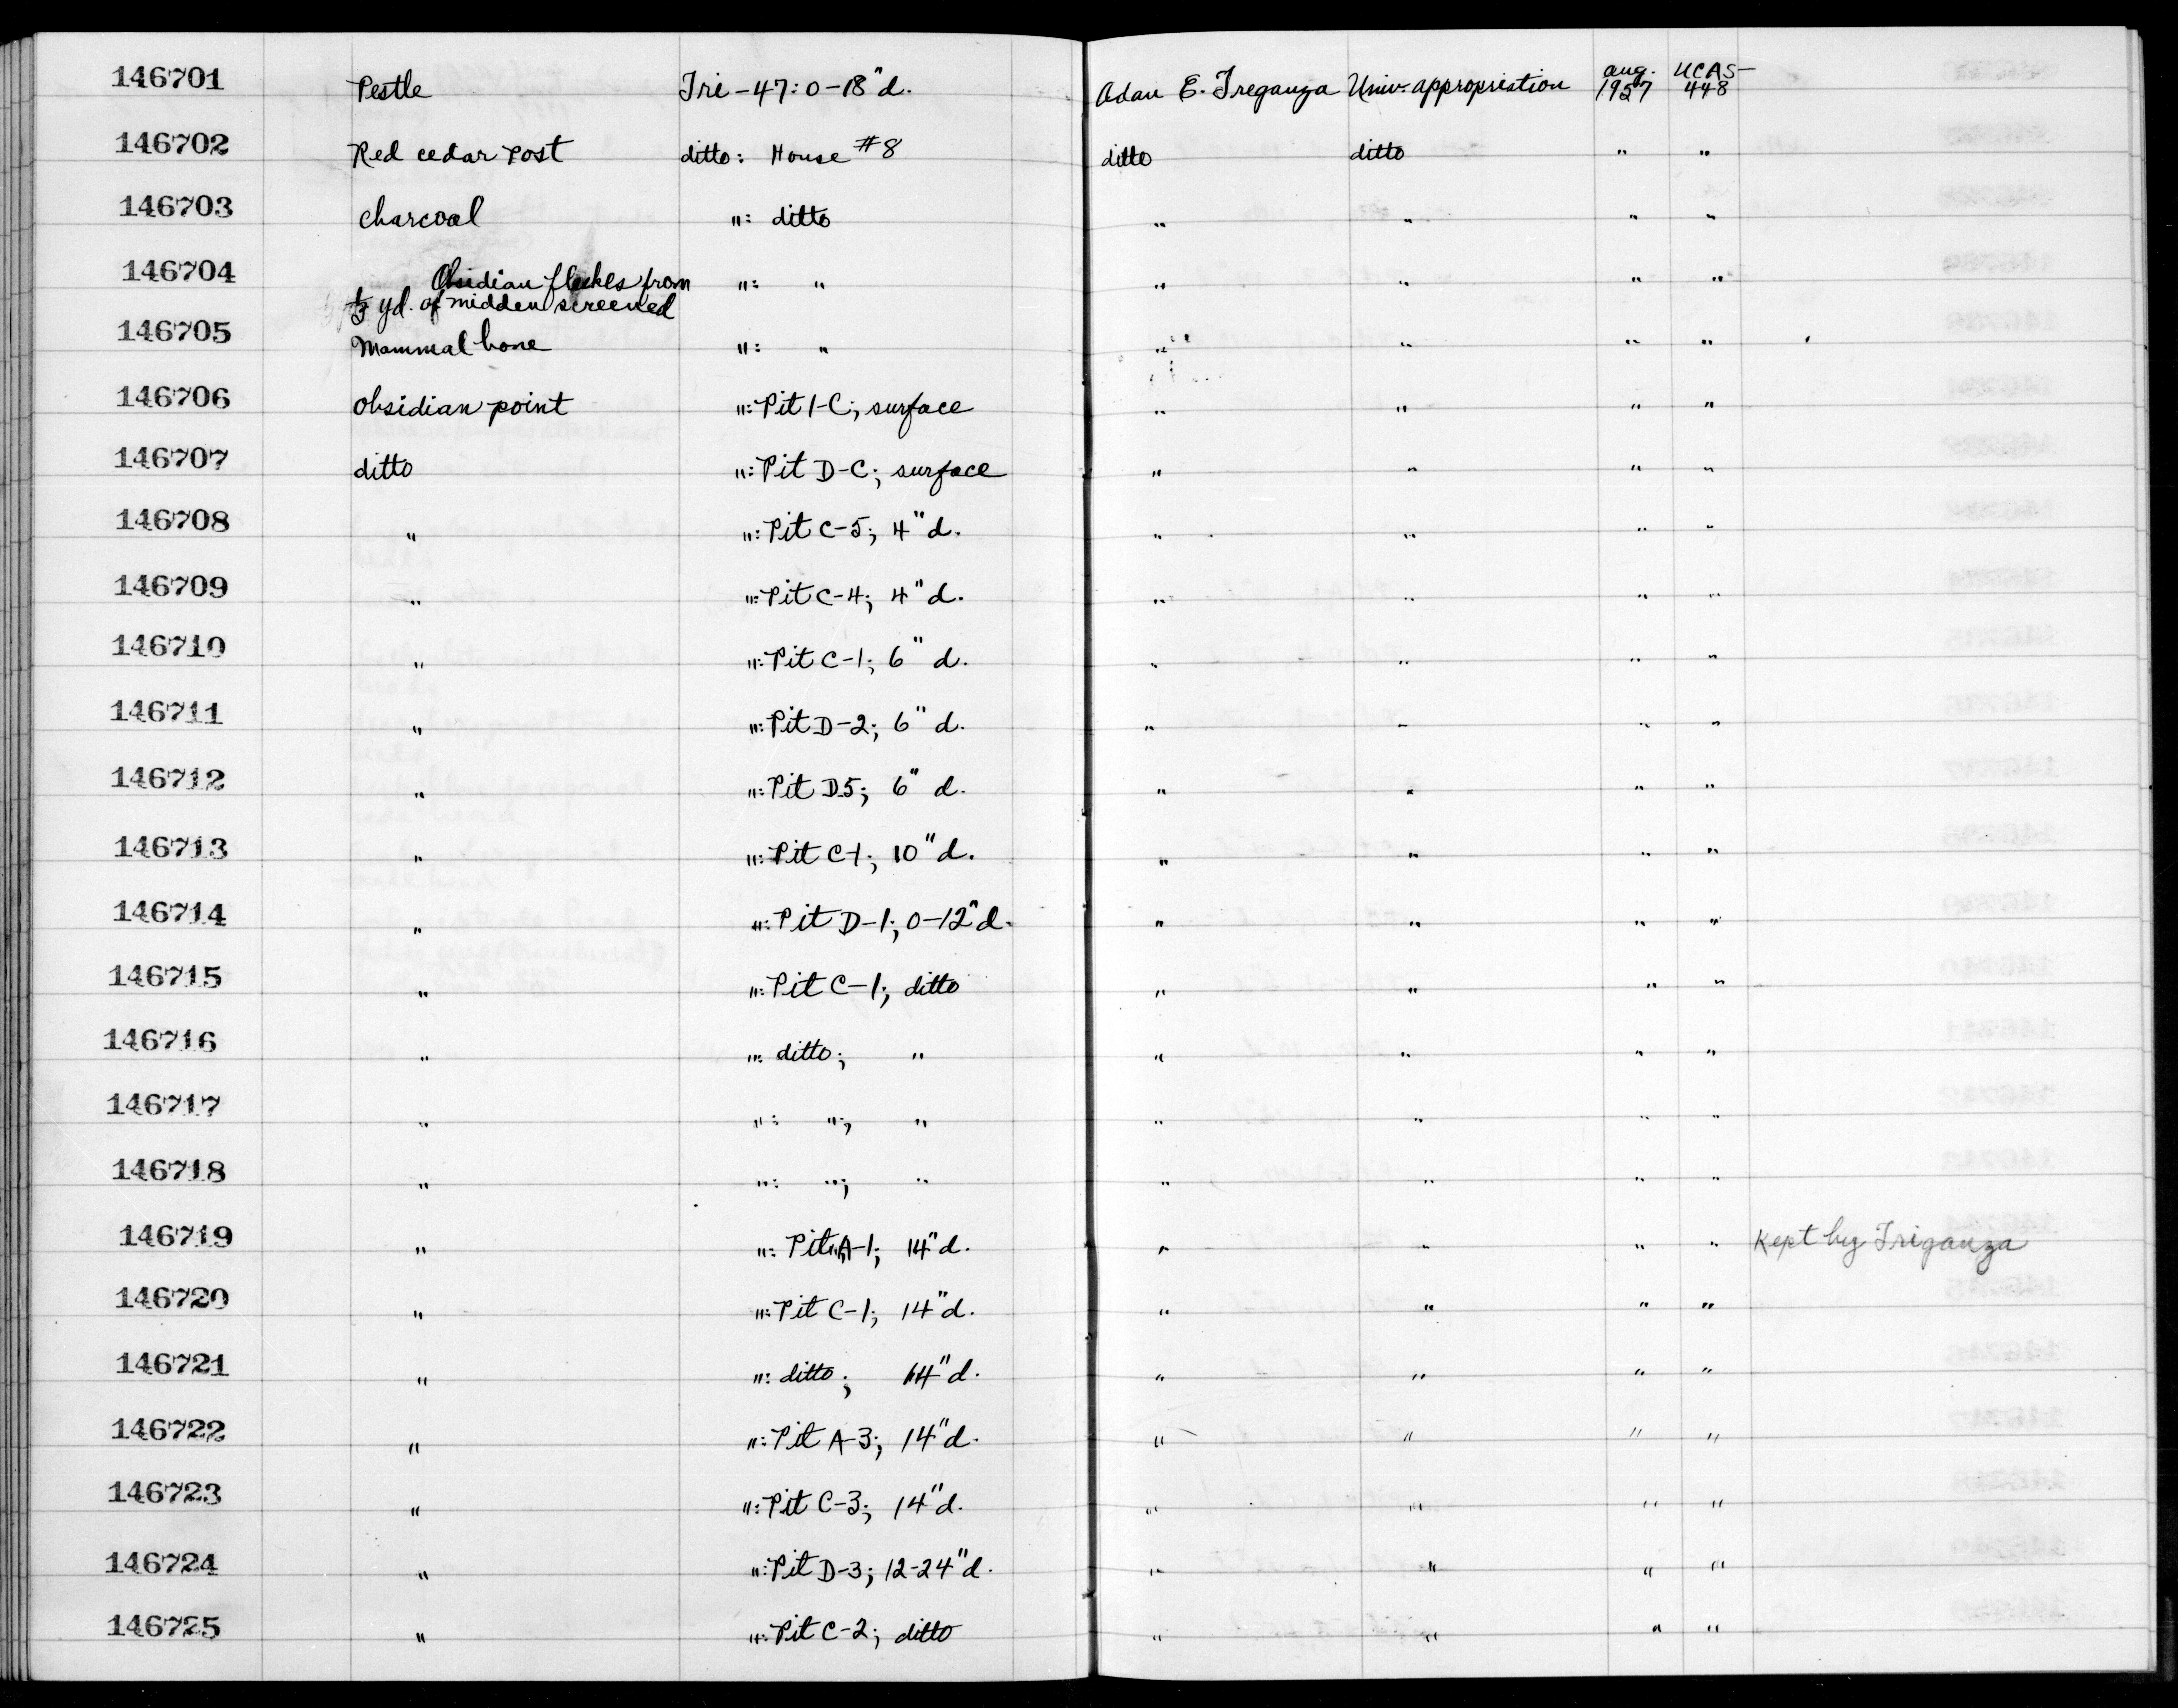 146701 Pestle Tri-47: 0-18"d. Adan E. Treganza Univ. appropriation Aug. 1957 UCAS-448
146702 Red cedar post ditto: House #8 ditto ditto " "
146703 Charcoal ": ditto " " " "
146704 Obsidian flakes from ": " " " " "
yd. of midden screened
146705 Mammal bone ": " " " " "
146706 Obsidian point ": Pit 1-C; surface " " " "
146707 ditto ": Pit D-C; surface " " " "
146708 " ": Pit C-5; 4"d. " " " "
146709 " ": Pit C-4; 4"d. " " " "
146710 " ": Pit C-1; 6"d. " " " "
146711 " ": Pit D-2; 6"d. " " " "
146712 " ": Pit D5; 6"d. " " " "
146713 " ": Pit C-1; 10"d. " " " "
146714 " ": Pit D-1; 0-12"d. " " " "
146715 " ": Pit C-1; ditto " " " "
146716 " ": ditto; " " " " "
146717 " ": "; " " " " "
146718 " ": "; " " " " "
146719 " ": Pit A-1; 14"d. " " " " Kept by Triganza
146720 " ": Pit C-1; 14"d. " " " "
146721 " ": ditto; 14"d. " " " "
146722 " ": Pit A-3; 14"d. " " " "
146723 " ": Pit C-3; 14"d. " " " "
146724 " ": Pit D-3; 12-24"d. " " " "
146725 " ": Pit C-2; ditto " " " "